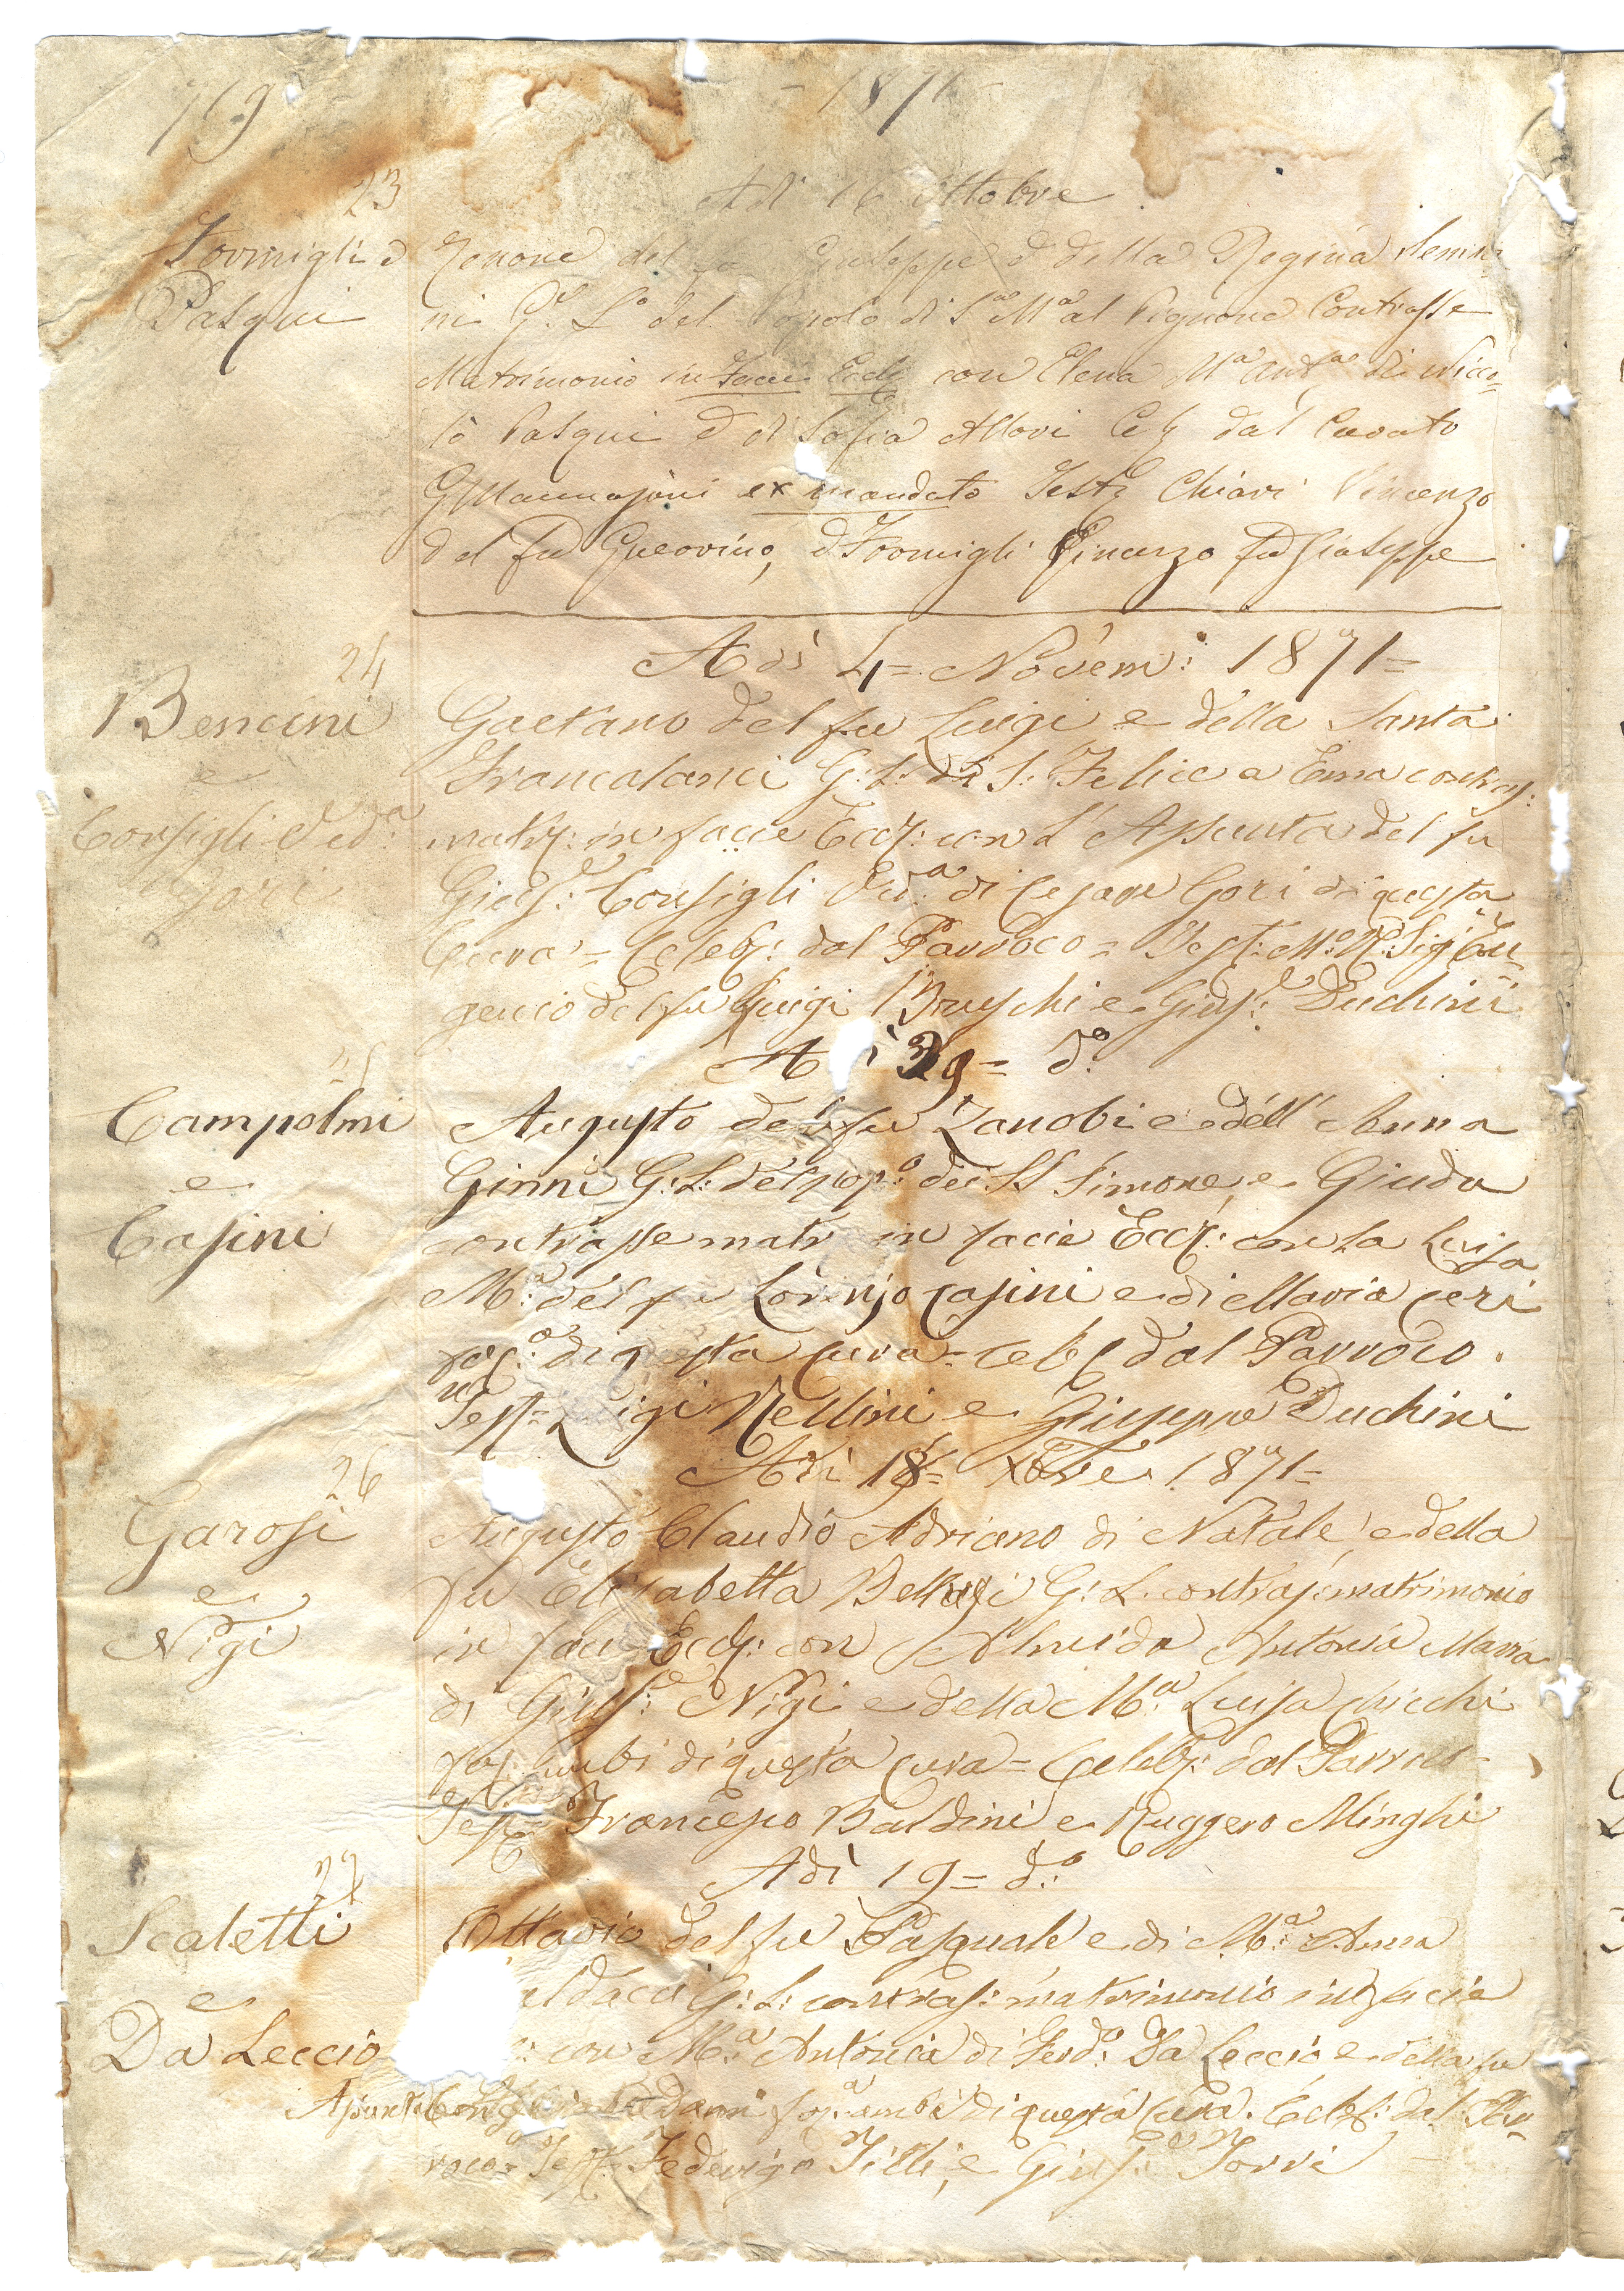 769
- 1871 -
23
Adì 16 Ottobre
Formigli e
Pasqui
Zenone del fu Giuseppe e della Regina
ni G.e L.o del Popolo di S.a M.a al Pignone Contrasse
Matrimonio in Facie Eccl. con Elena M.a Ant.a di Nicco=
lò Pasqui e di Sofia Allori Cel. dal Curato
ex mandato Test. Chiari Vincenzo
del fu Guerrino, e Formigli Vincenzo fu Giuseppe
24
Adì 4= Novem: 1871=
Bencini
e
Consigli Ved.a
Gori
Gaetano del fu Luigi e della Santa
Francalanci G: L: di S: Felice a Ema contras:
matr: in facie Eccl: con l'Assunta del fu
Gius: Consigli Ved.a di Cesare Gori di questa
Cura = Celeb: dal Parroco = Test: M: R: Sig: Eu=
genio del fu Luigi Bruschi e Gius: Duchini
25
A ì 29= d.o
Campolmi
e
Casini
Augusto del fu Zanobi e dell'Anna
Ginni G: L: del pop.o dei SS Simone, e Giuda
contrasse matr in facie Eccl: con la Luisa
M.a del fu Lorenzo Casini e di Maria Ceri
di questa cura = Celeb dal Parroco.
Test= Luigi Nellini e Giuseppe Duchini
26
Adì 18= Xbre 1871=
Garosi
e
Nigi
Augusto Claudio Adriano di Natale, e della
fu Elisabetta G: L. contras: matrimonio
in faci Eccl: con Almida Antonia Maria
di Gius: Nigi e della M.a Luisa Chicchi
ambi di questa cura = Celeb: dal Parroco=
Test= Francesco Baldini e Ruggero Minghi
27
Adì 19= d.o
Scaletti
e
Da Leccio
Ottavio del fu Pasquale e di M.a Anna
aldacci G: L: contras: matrimonio in facie
: con M.a Antonia di Ferd.o Da Leccio, e della fu
Assunta ambi di questa cura. Celeb: dal Par=
roco= Test= Federigo Tilli, e Gius.e Torri